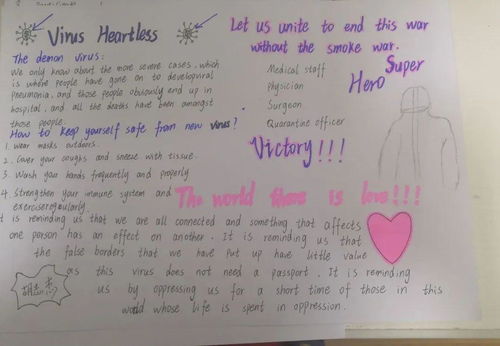 Virus Heartless
The demon virus:
We only know about the more severe cases, which
is where people have gone on to developviral
pneumonia, and those people obviously end up in
hospital, and all the deaths have been amongst
those people.
How to keep yourself safe from new virus?
1. Wear masks outdoors.
2. Cover your coughs and sneeze with tissue.
3. Wash your hands frequently and properly
4. Strengthen your immune system and
exerciseregularly.
Let us unite to end this war
without the smoke war.
Medical staff
physician
Surgeon
Quarantine officer
Super
Hero
Victory!!!
The world there is love!!!
t is reminding us that we are all connected and something that affects
one person has an effect on another. It is reminding us that
the false borders that we have put up have little value
as this virus does not need a passport. It is reminding
us by oppressing us for a short time of those in this
world whose life is spent in oppression.